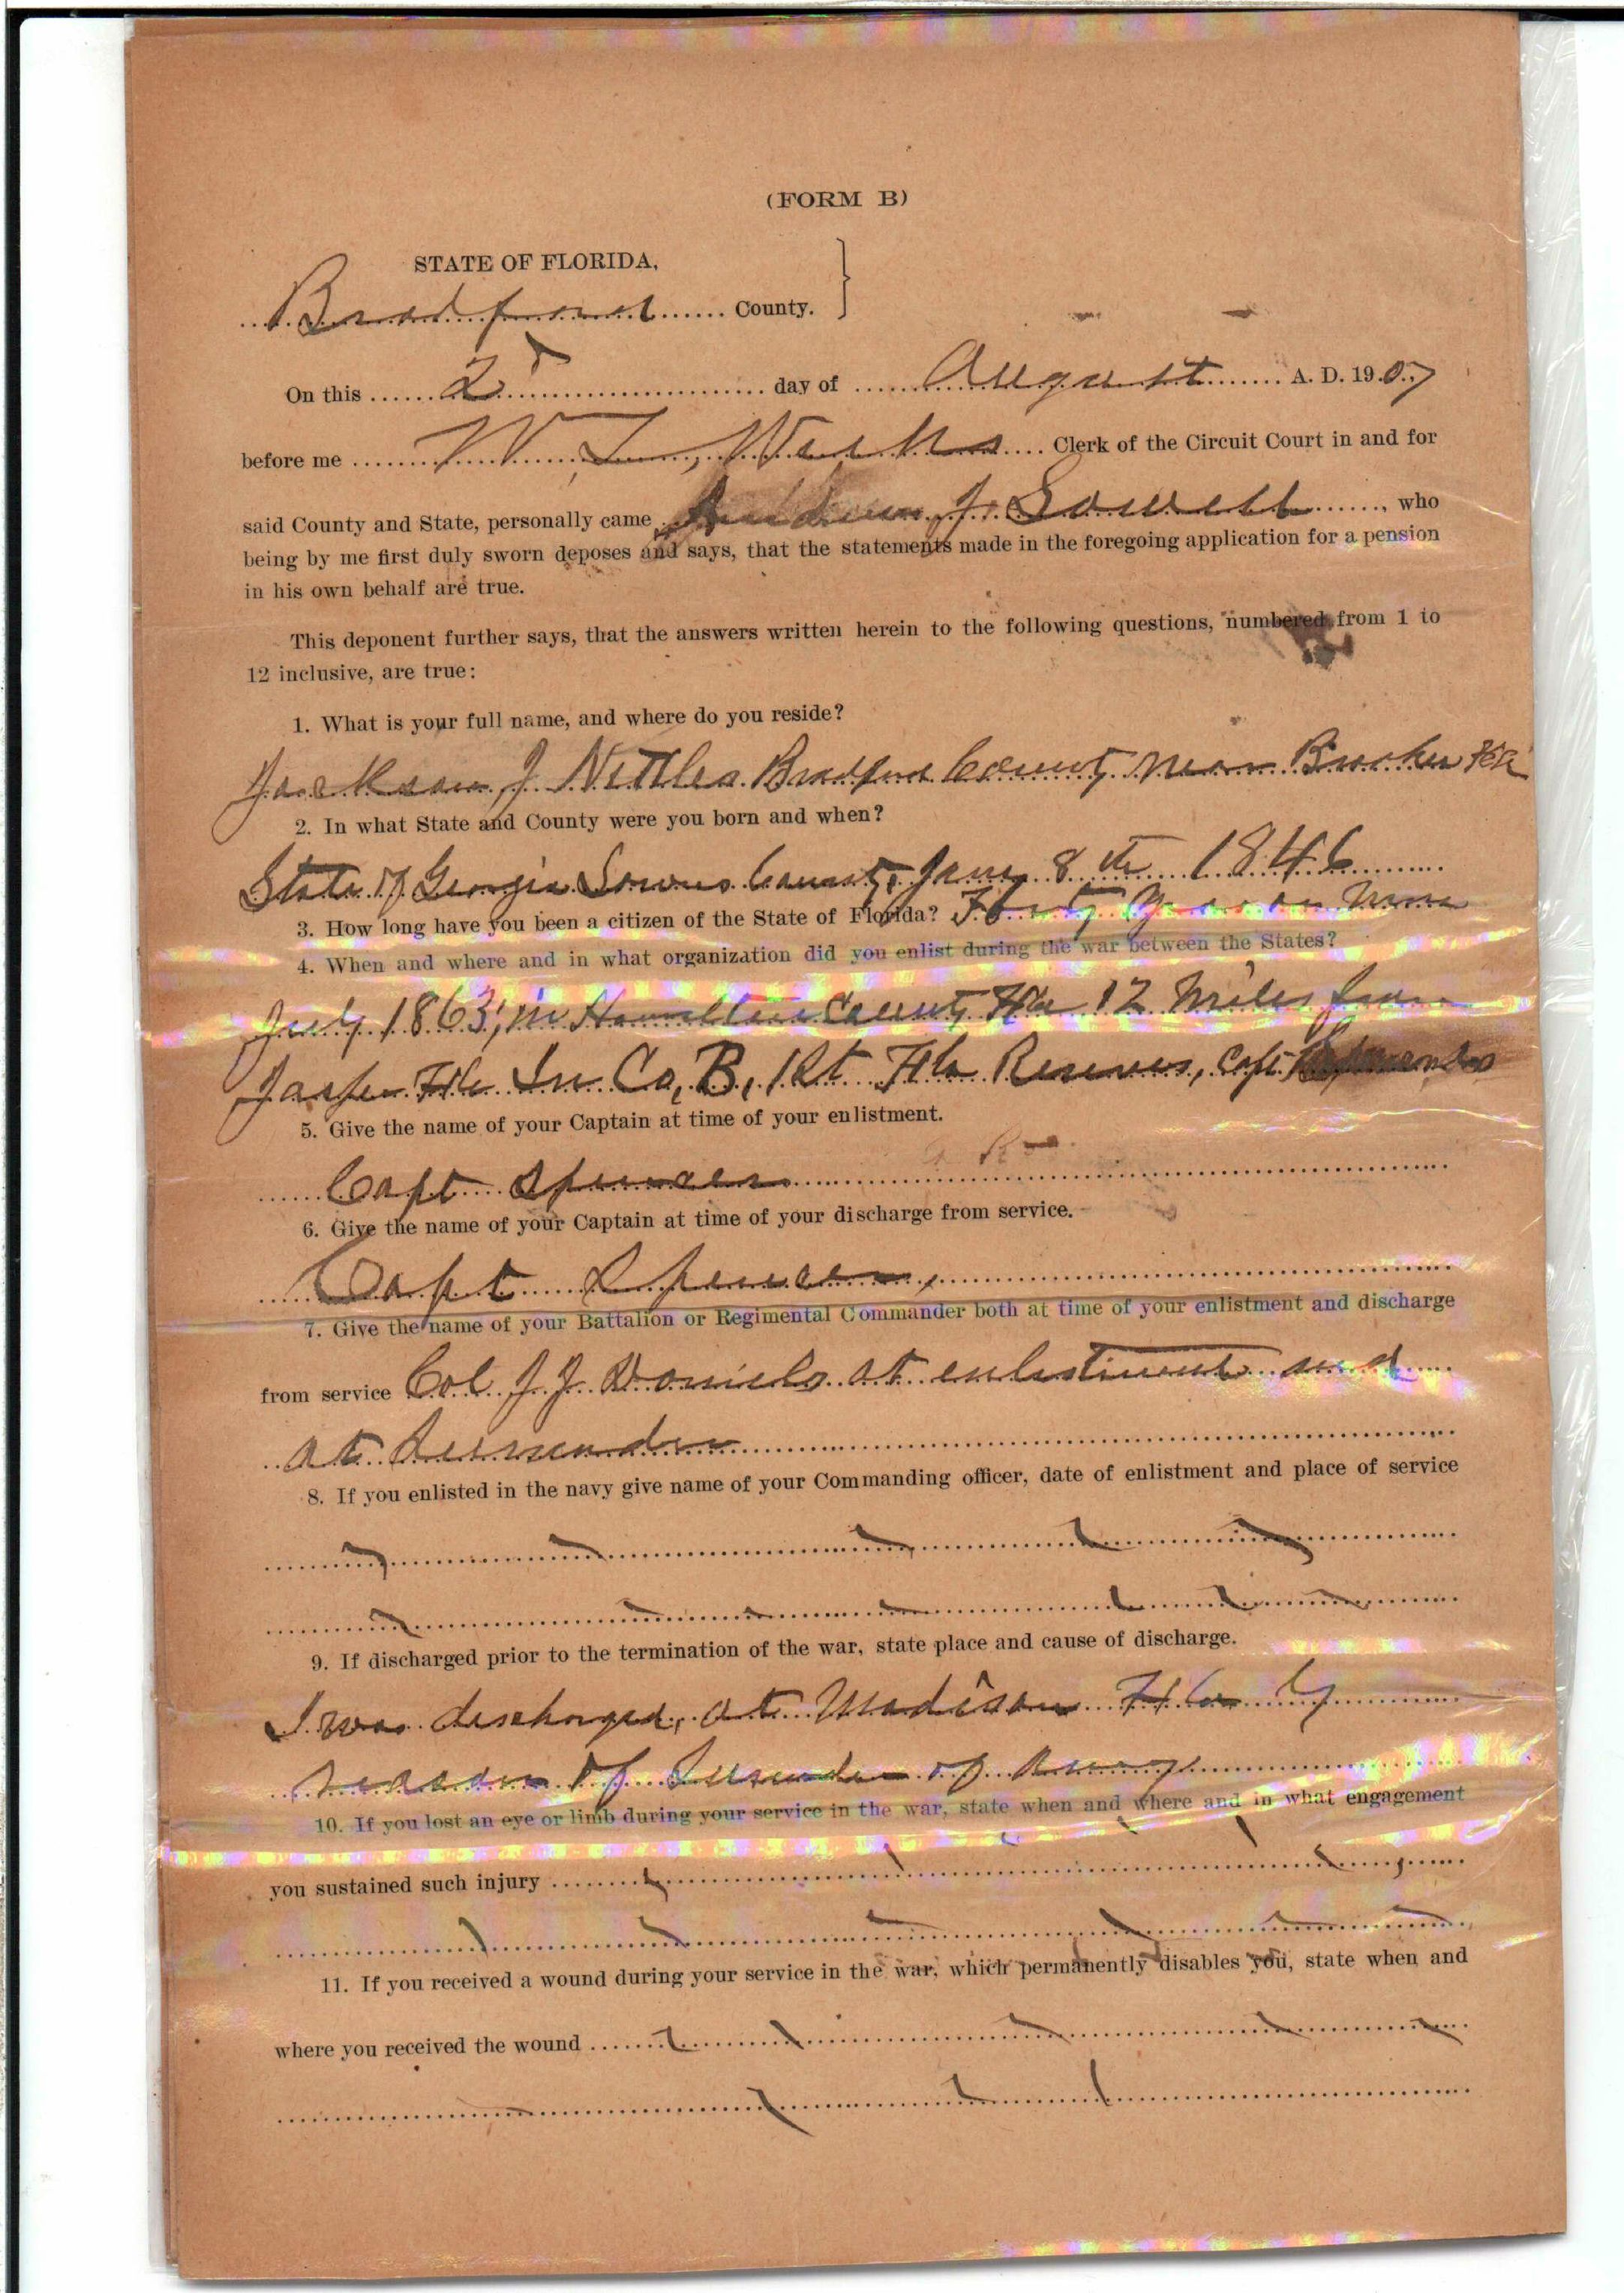 (FORM B)
STATE OF FLORIDA,
Bradford County.
On this 2 day of August A. D. 1907
before me W. L. Weeks Clerk of the Circuit Court in and for
said County and State, personally came J. Sowell, who
being by me first duly sworn deposes and says, that the statements made in the foregoing application for a pension
in his own behalf are true.
This deponent further says, that the answers written herein to the following questions, numbered from 1 to
12 inclusive, are true:
1. What is your full name, and where do you reside?
Jackson J Nettles Bradford County near Brooker Fla
2. In what State and County were you born and when?
State of Georgia County, Jany 8th 1846
3. How long have you been a citizen of the State of Florida?
4. When and where and in what organization did you enlist during the war between the States?
July 1863, in Hamilton County Fla 12 Miles from
Jasper Fla In Co, B, 1st Fla Reserves, Capt
5. Give the name of your Captain at time of your enlistment.
Capt Spencer
6. Give the name of your Captain at time of your discharge from service.
Capt Spencer,
7. Give the name of your Battalion or Regimental Commander both at time of your enlistment and discharge
from service Col J J Daniels at enlistment and
at Surrender
8. If you enlisted in the navy give name of your Commanding officer, date of enlistment and place of service
9. If discharged prior to the termination of the war, state place and cause of discharge.
I was discharged, at Madison Fla by
reason of Surender of Army
10. If you lost an eye or limb during your service in the war, state when and where and in what engagement
you sustained such injury
11. If you received a wound during your service in the war, which permanently disables you, state when and
where you received the wound